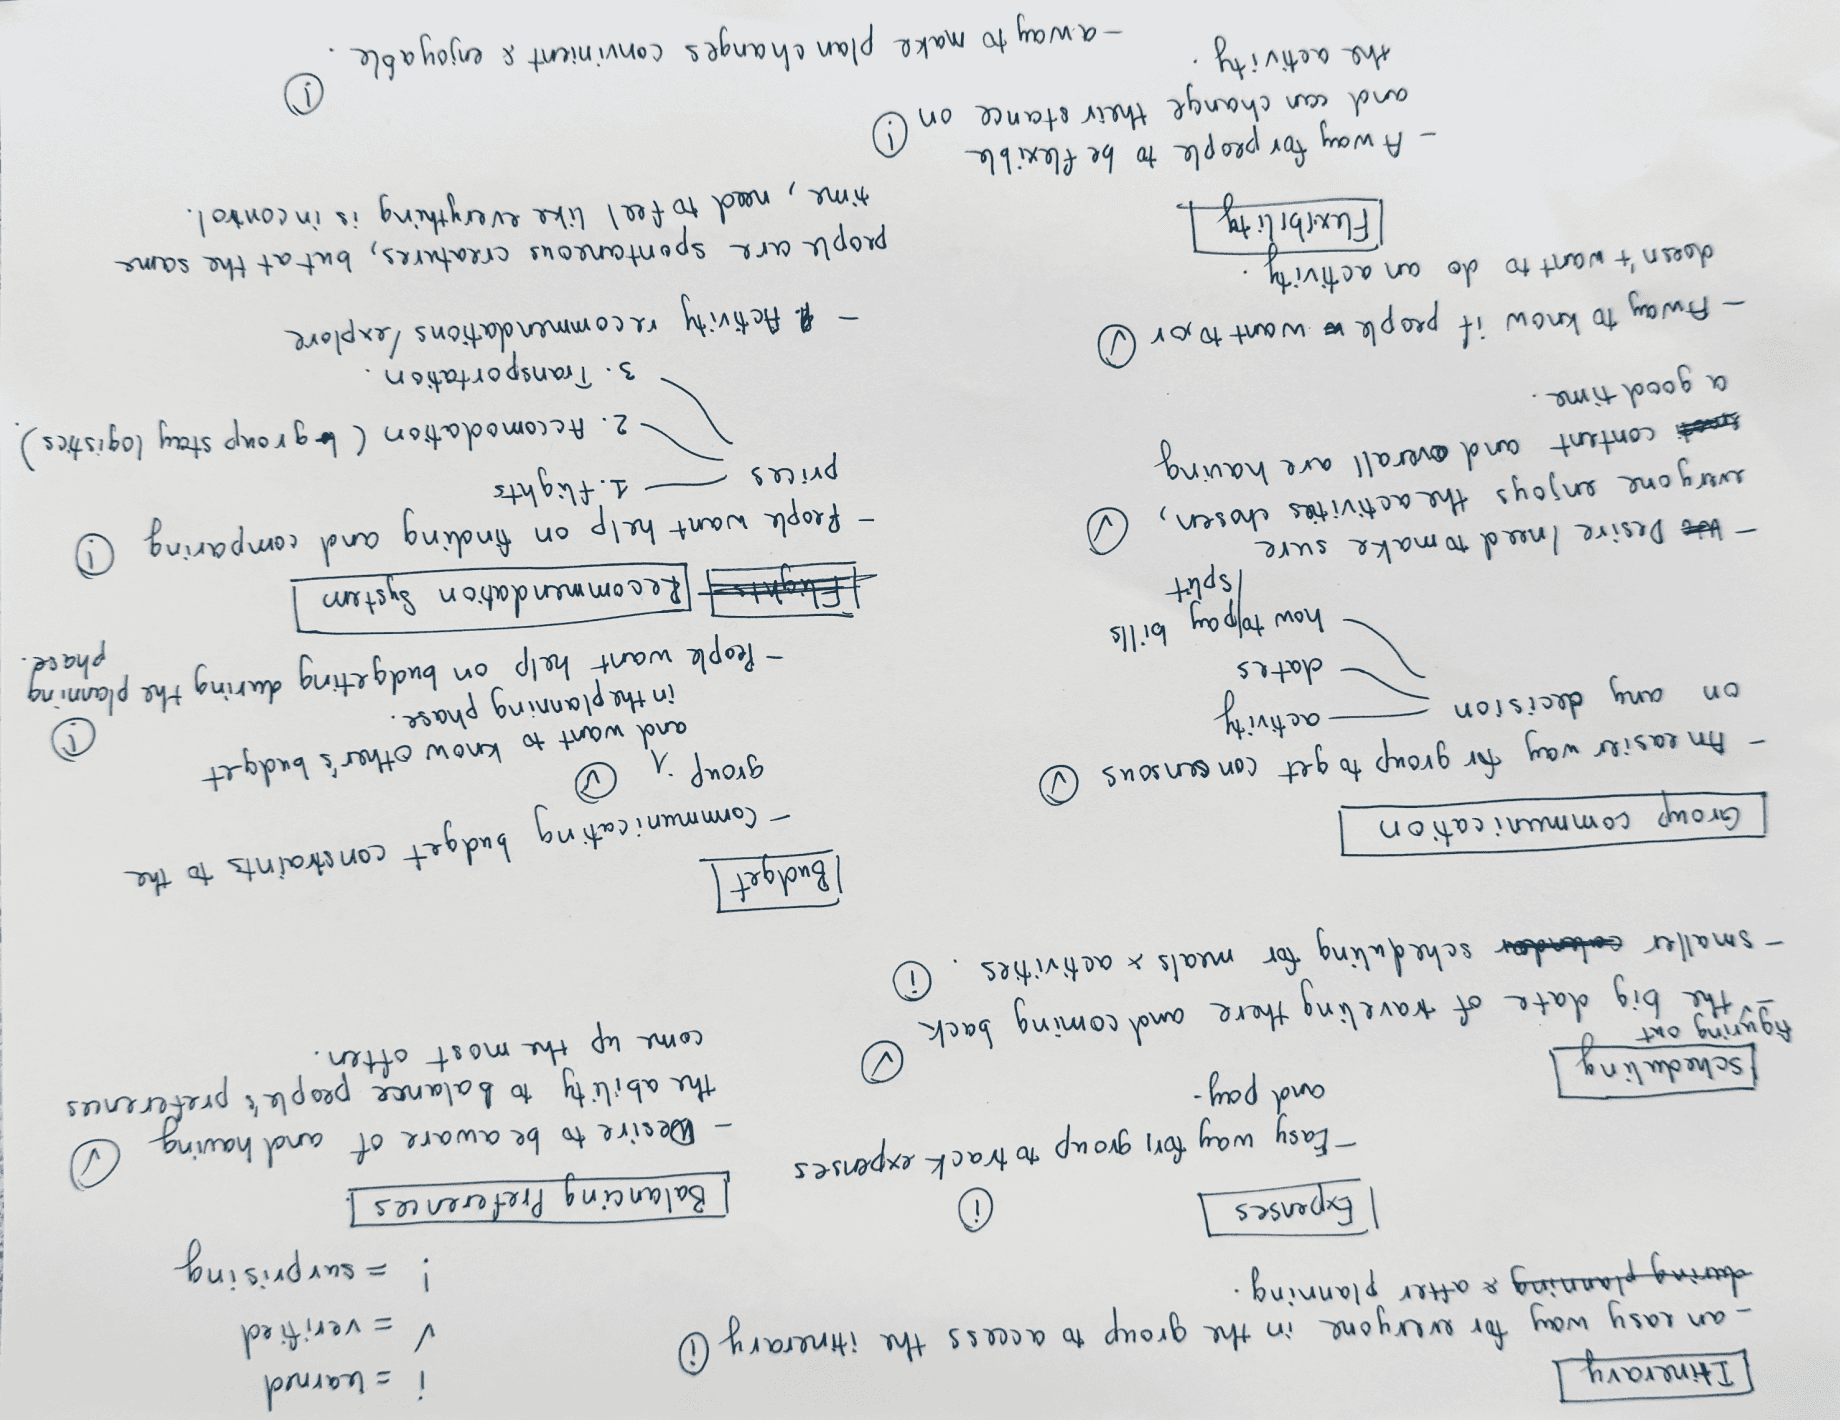 Itinerary
- an easy way for everyone in the group to access the itinerary i
during planning & after planning.
Expenses
i
- Easy way for group to track expenses
and pay.
Scheduling
figuring out
- the big date of traveling there and coming back ✓
- smaller calendar scheduling for meals & activities. i
Group communication
- An easier way for group to get consensous ✓
on any decision
activity
dates
how to pay bills
/split
- Desire / need to make sure
everyone enjoys the activities chosen, ✓
content and overall are having
a good time.
- A way to know if people want to or ✓
doesn't want to do an activity.
Flexibility
- A way for people to be flexible
and can change their stance on i
the activity.
- a way to make plan changes convinient & enjoyable.
i
i = learned
✓ = verified
! = surprising
Balancing Preferences
- Desire to be aware of and having ✓
the ability to balance people's preferences
come up the most often.
Budget
- Communicating budget constraints to the
group ✓
and want to know other's budget
in the planning phase.
- People want help on budgeting during the planning
phase.
i
Flights Recommendation System
- People want help on finding and comparing i
prices
1. flights
2. Accomodation (group stay logistics).
3. Transportation.
- Activity recommendations / explore
people are spontaneous creatures, but at the same
time, need to feel like everything is in control.